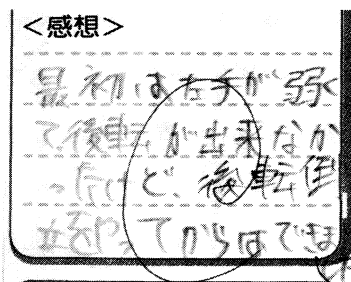 <感想>
最初は左手が弱く
て、後転が出来なか
ったけど、後転倒
立をやってからはできま
した